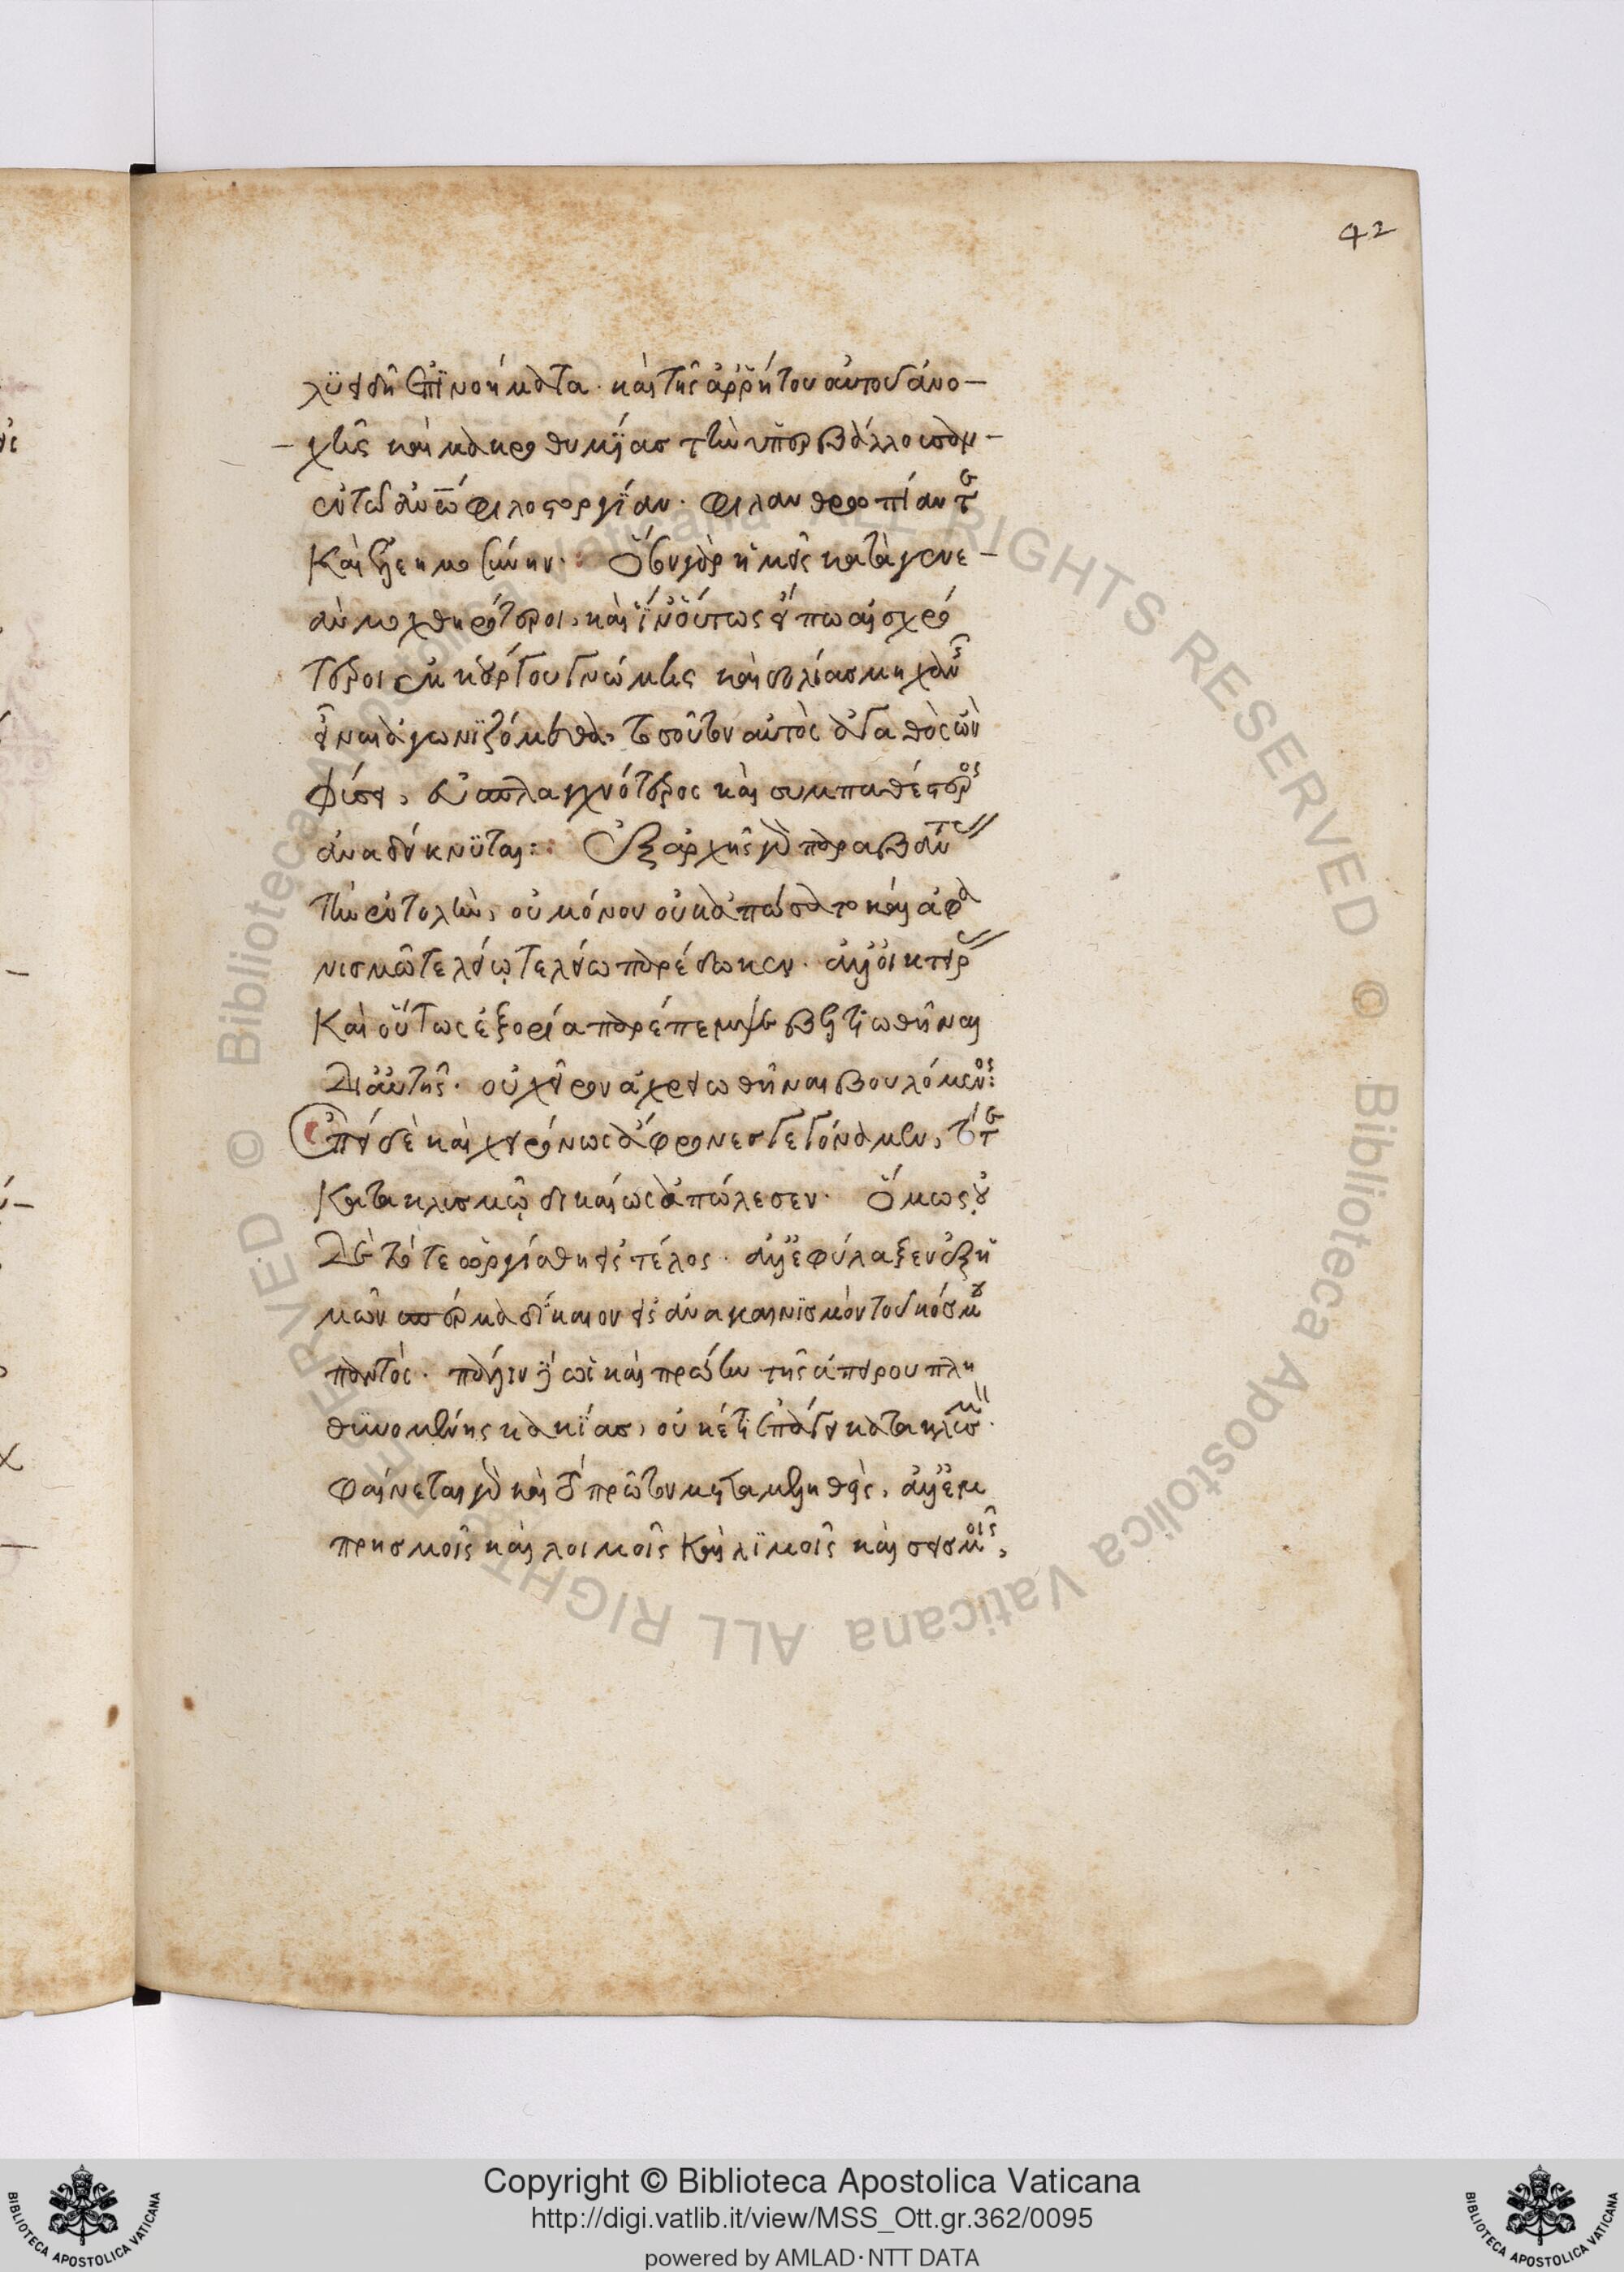 42
λϋειδῆ ἐπϊνοήματα. καὶ τῆς ἀρρήτου αὐτοῦ ἀνο-
χῆς καὶ μακροθυμίας τὴν ὑπερβάλλουσαν
φιλοστοργίαν. φιλανθρωπίαν τε
Καὶ ἐλεημοσύνην. Ὅσον γὰρ ἡμεῖς κατὰ γενε-
ὰν μοχθηρότεροι, καὶ ἵν' οὕτως εἴπω αἰσχρό
τεροι ἐκ γνώμης καὶ
εἶναι ἀγωνιζόμεθα, τοσοῦτον αὐτὸς ἀγαθὸς ὢν
φύσει, εὐσπλαγχνότερος καὶ συμπαθέστερος
ἀναδείκνυται: Ἐξ ἀρχῆς γὰρ παραβάντας
τὴν ἐντολὴν, οὐ μόνον οὐκ ἀπώσατο καὶ ἀφα
νισμῷ τελείῳ τελείως παρέδωκεν. ἀλλ' οἰκτείρ
Καὶ οὕτως ἐξορία παρέπεμψε βελτιωθῆναι
Δι' αὐτῆς. οὐ χεῖρον ἀχρειωθῆναι βουλόμενος:
Ἐπεὶ δὲ καὶ χειρόνως ἄφρονες γεγόναμεν, τότε
Κατακλισμῷ δικαίως ἀπώλεσεν. Ὅμως οὐ
Δὲ τότε ὠργίσθη εἰς τέλος. ἀλλ' ἐφύλαξεν ἐξ ἡ
μῶν σπέρμα δίκαιον εἰς ἀνακαινισμὸν τοῦ κόσμου
παντός. πάλιν δὲ ὡς καὶ πρώτον τῆς ἀπείρου πλη
θϋνομένης κακίας, οὐκέτι ἐπάγει κατακλυσμόν.
Φαίνεται γὰρ καὶ τὸ πρῶτον μεταμεληθεὶς, ἀλλ' ἐμ
πρησμοῖς καὶ λοιμοῖς καὶ λϊμοῖς καὶ σεισμοῖς,
Copyright © Biblioteca Apostolica Vaticana
http://digi.vatlib.it/view/MSS_Ott.gr.362/0095
powered by AMLAD·NTT DATA
BIBLIOTECA APOSTOLICA VATICANA
BIBLIOTECA APOSTOLICA VATICANA
© Biblioteca Apostolica Vaticana ALL RIGHTS RESERVED © Biblioteca Apostolica Vaticana ALL RIGHTS RESERVED